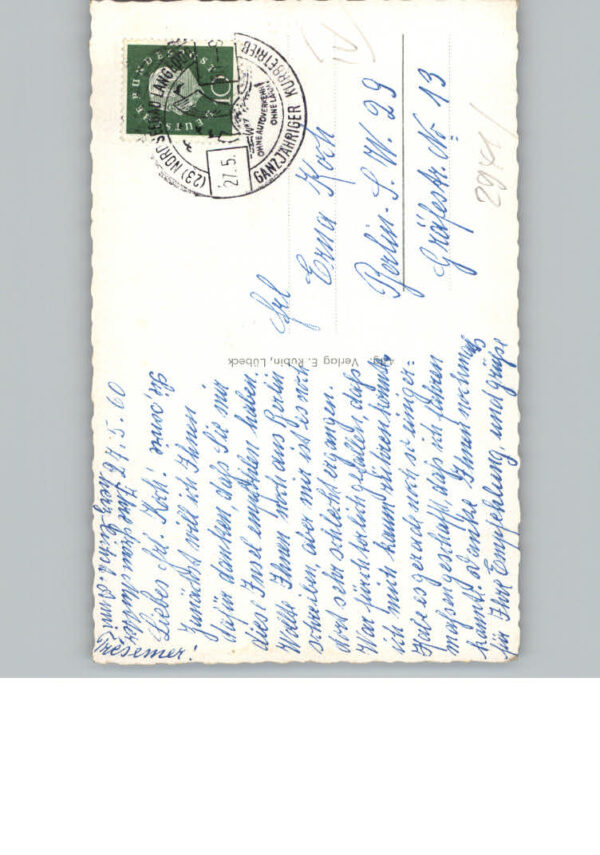 27.5.60
Liebes Frl. Koch!
Zunächst will ich Ihnen
dafür danken, daß Sie mir
diese Insel empfohlen haben.
Wollte Ihnen noch aus Berlin
schreiben, aber mir ist es noch
dort sehr schlecht ergangen.
War fürchterlich gefallen, daß
ich mich kaum rühren konnte.
Habe es gerade noch so einiger-
maßen geschafft, daß ich fahren
konnte. Danke Ihnen nochmals
für Ihre Empfehlung und grüße
Sie herzlichst
Ihre
Tresemer!
Verlag E. Rubin, Lübeck
DEUTSCHE BUNDESPOST
10
(23) NORDSEEBAD LANGEOOG
27.5.
OHNE AUTOVERKEHR
OHNE LÄRM
GANZJÄHRIGER KURBETRIEB
IV
Frl
Erna Koch
Berlin-S.W. 29
Gräfestr. № 13